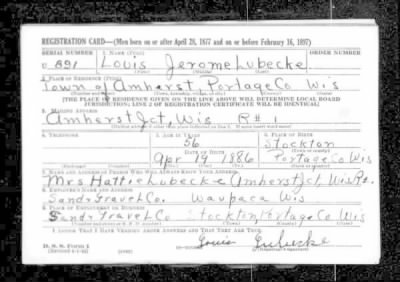 REGISTRATION CARD—(Men born on or after April 28, 1877 and on or before February 16, 1897)
SERIAL NUMBER 1. NAME (Print) ORDER NUMBER
U 891 Louis Jerome Lubecke
(First) (Middle) (Last)
2. PLACE OF RESIDENCE (Print)
Town of Amherst Portage Co Wis
[THE PLACE OF RESIDENCE GIVEN ON THE LINE ABOVE WILL DETERMINE LOCAL BOARD
JURISDICTION; LINE 2 OF REGISTRATION CERTIFICATE WILL BE IDENTICAL]
3. MAILING ADDRESS
Amherst Jct, Wis R#1
4. TELEPHONE 5. AGE IN YEARS 6. PLACE OF BIRTH
56 Stockton
DATE OF BIRTH
Apr 19 1886 Portage Co Wis
7. NAME AND ADDRESS OF PERSON WHO WILL ALWAYS KNOW YOUR ADDRESS
Mrs Hattie Lubecke Amherst Jct, Wis
8. EMPLOYER'S NAME AND ADDRESS
Sand + Gravel Co. Waupaca Wis
9. PLACE OF EMPLOYMENT OR BUSINESS
Sand + Gravel Co Stockton Portage Co Wis
I AFFIRM THAT I HAVE VERIFIED ABOVE ANSWERS AND THAT THEY ARE TRUE.
D. S. S. Form 1
(Revised 4-1-42) (over)
Louis Lubecke